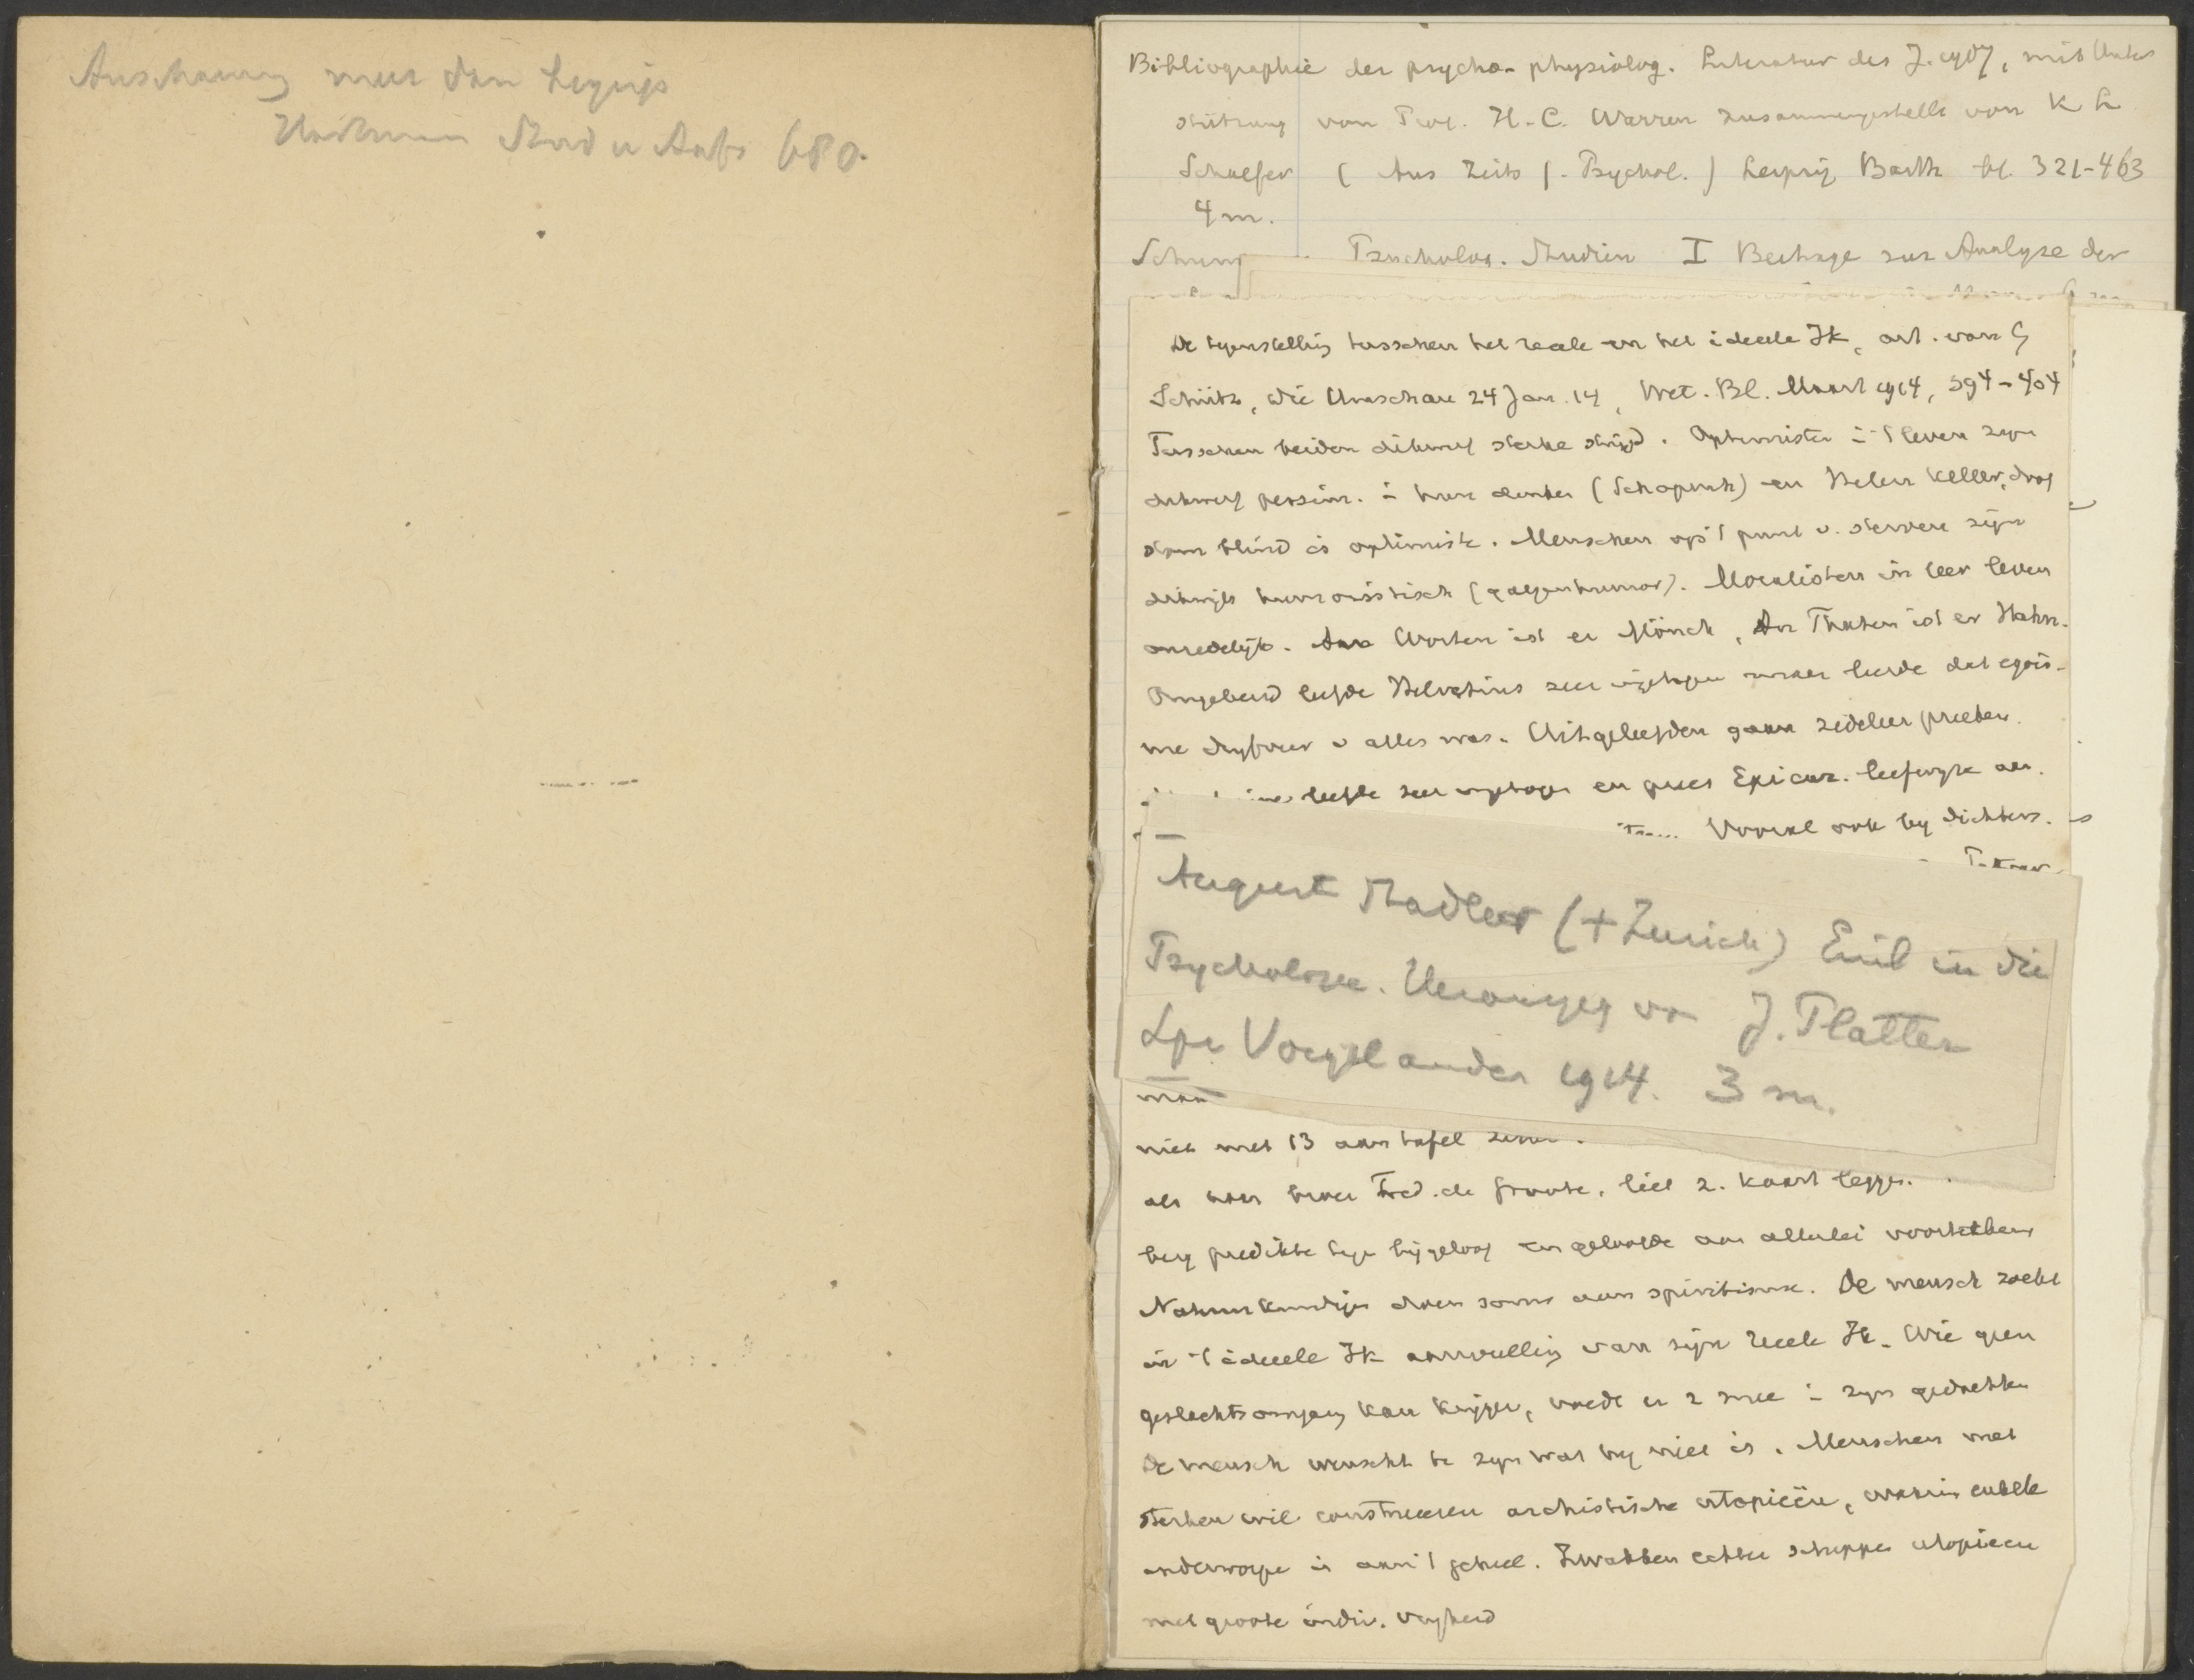 Anschauung
680.
Bibliographie der psycho-physiolog. Literatur des J. 1907, mit Unter
stützung von Prof. H. C. Warren zusammengestellt von K L
Schaefer (Aus Zeits f. Psychol.) Leipzig Barth bl. 321-463
4 m.
Psycholog. Studien I Beitrage zur Analyse der
De tegenstelling tusschen het reeele en het ideeele Ik, art. van G
Schütz, Die Umschau 24 Jan. 14, Wet. Bl. Maart 1914, 394-404
Tusschen beiden dikwerf sterke strijd. Optimisten i 't leven zyn
dikwerf pessim. i hun denken (Schopenh) en Helen Keller, doof
stom blind is optimiste. Menschen op 't punt v. sterven zijn
dikwijls humoristisch (galgenhumor). Moralisten in leer leven
onzedelijk. An Worten ist er Mönch, An Thaten ist er Hahn.
Omgekeerd leefde Helvetius zeer ingetogen maar leerde dat egois-
me dryfveer v alles was. Uitgeleefden gaan zedeleer preeken.
leefde zeer ingetogen en prees Epicur. leefwyze aan.
Vooral ook by dichters.
August Stadler (+Zurich) Einl in die
Psychologie. Herausgeg von J. Platter
Lpz Voigtlander 1914. 3 m.
niet met 13 aan tafel zitten.
Fred. de Groote, liet z. kaart leggen.
berg predikte tegen bijgeloof en geloofde aan allerlei voorteekens
Natuurkundigen doen soms aan spiritisme. De mensch zoekt
in 't ideeele Ik aanvulling van zijn reeele Ik. Wie geen
geslachtsomgang kan krijgen, voedt er z mee i zyn gedachten
De mensch wenscht te zyn wat hy niet is. Menschen met
sterken wil construeeren utopieën, waarin enkele
onderworpen is aan 't geheel. Zwakken echter scheppen utopieen
met groote indiv. vryheid